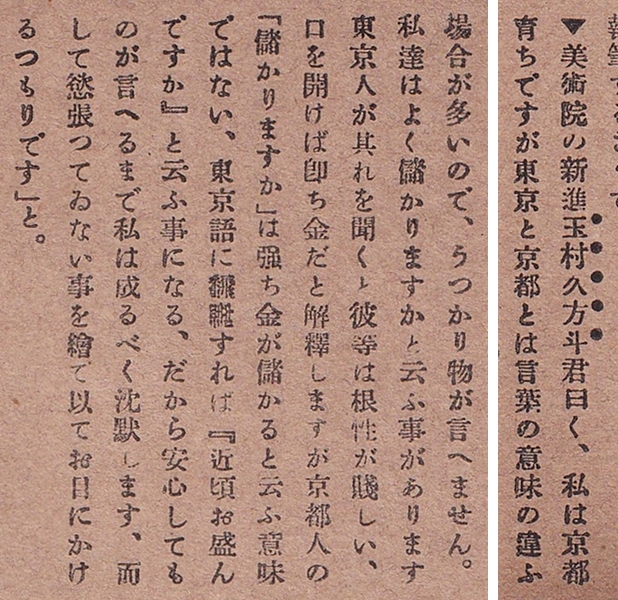 ▼美術院の新進玉村久方斗君曰く、私は京都
育ちですが東京と京都とは言葉の意味の違ふ
場合が多いので、うつかり物が言へません。
私達はよく儲かりますかと云ふ事があります
東京人が其れを聞くと彼等は根性が賤しい、
口を開けば卽ち金だと解釋しますが京都人の
「儲かりますか」は强ち金が儲かると云ふ意味
ではない、東京語に飜譯すれば『近頃お盛ん
ですか』と云ふ事になる、だから安心しても
のが言へるまで私は成るべく沈默します、而
して慾張つてゐない事を繪で以てお目にかけ
るつもりです」と。